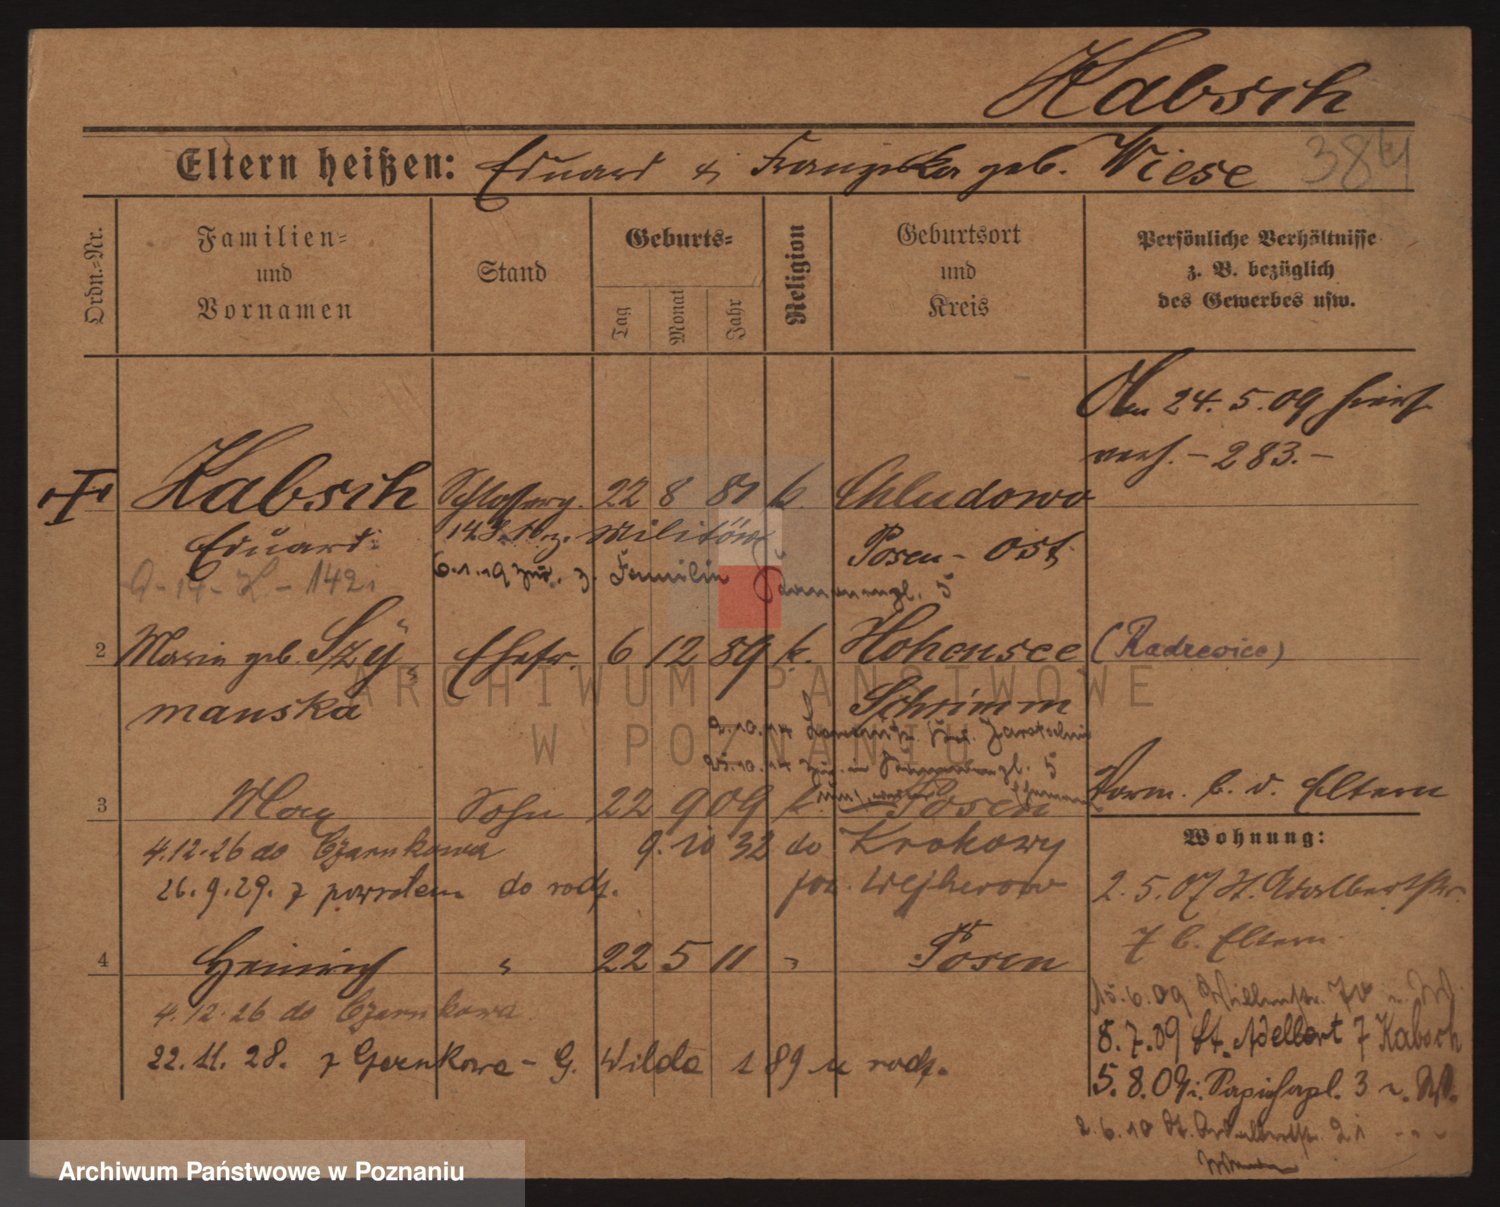 Kabsch
Eltern heißen: Eduard & Franziska geb. Wiese
384
Ordn.-Nr.
Familien-
und
Vornamen
Stand
Geburts-
Tag
Monat
Jahr
Religion
Geburtsort
und
Kreis
Persönliche Verhältnisse
z. B. bezüglich
des Gewerbes usw.
Am 24. 5. 09 hier
verh. - 283. -
Kabsch Schlosserg. 22 8 81 k. Chludowo
Eduard Posen - Ost
z. Militär
6.1.19 zur. z. Familie 5
2 Marie geb. Szy Ehefr. 6 12 89 k. Hohensee (Radzewice)
manska Schrimm
9.10.14
25.10.14 zur. 5
3 Max Sohn 22 9 09 k. Posen
Vorm. b. d. Eltern
Wohnung:
4.12.26 do Czarnkowa 9. 10 32 do Krokowy
26.9.29. z powrotem do rodz. pow. Wejherowo
2.5.07 St. Adalbertstr.
7 b. Eltern
4 Heinrich 22 5 11 Posen
4.12.26 do Czarnkowa
15.6.09
22.11.28. z Czarnkowa - G. Wilda 189 u rodz.
8.7.09 St. Adelbert 7 Kabsch
5.8.09 3
2.6.10 St. Adalbertstr. 21
ARCHIWUM PAŃSTWOWE
W POZNANIU
Archiwum Państwowe w Poznaniu